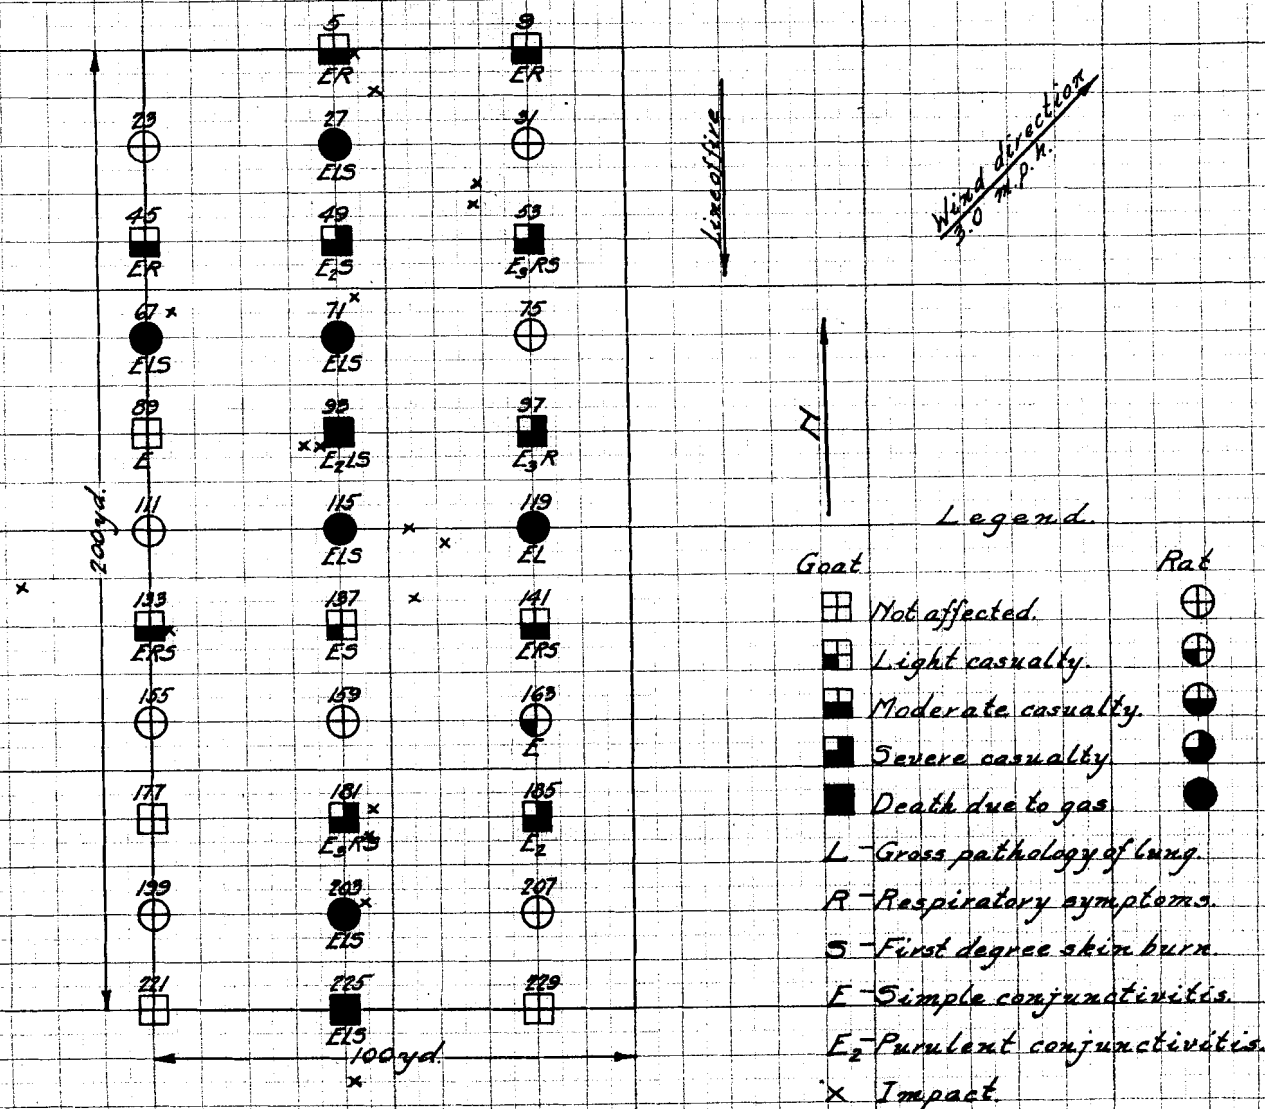 5 9
ER ER
23 27 31
ELS
45 49 53
ER E₂S E₃RS
67 71 75
ELS ELS
89 93 97
E E₂LS E₃R
111 115 119
ELS EL
133 137 141
ERS ES ERS
155 159 163
E
177 181 185
E₃RS E₂
199 203 207
ELS
221 225 229
ELS
200yd.
100yd.
Line of fire
Wind direction
3.0 m.p.h.
N
Legend.
Goat Rat
Not affected.
Light casualty.
Moderate casualty.
Severe casualty
Death due to gas
L - Gross pathology of lung.
R - Respiratory symptoms.
S - First degree skin burn.
E - Simple conjunctivitis.
E₂ - Purulent conjunctivitis.
x Impact.